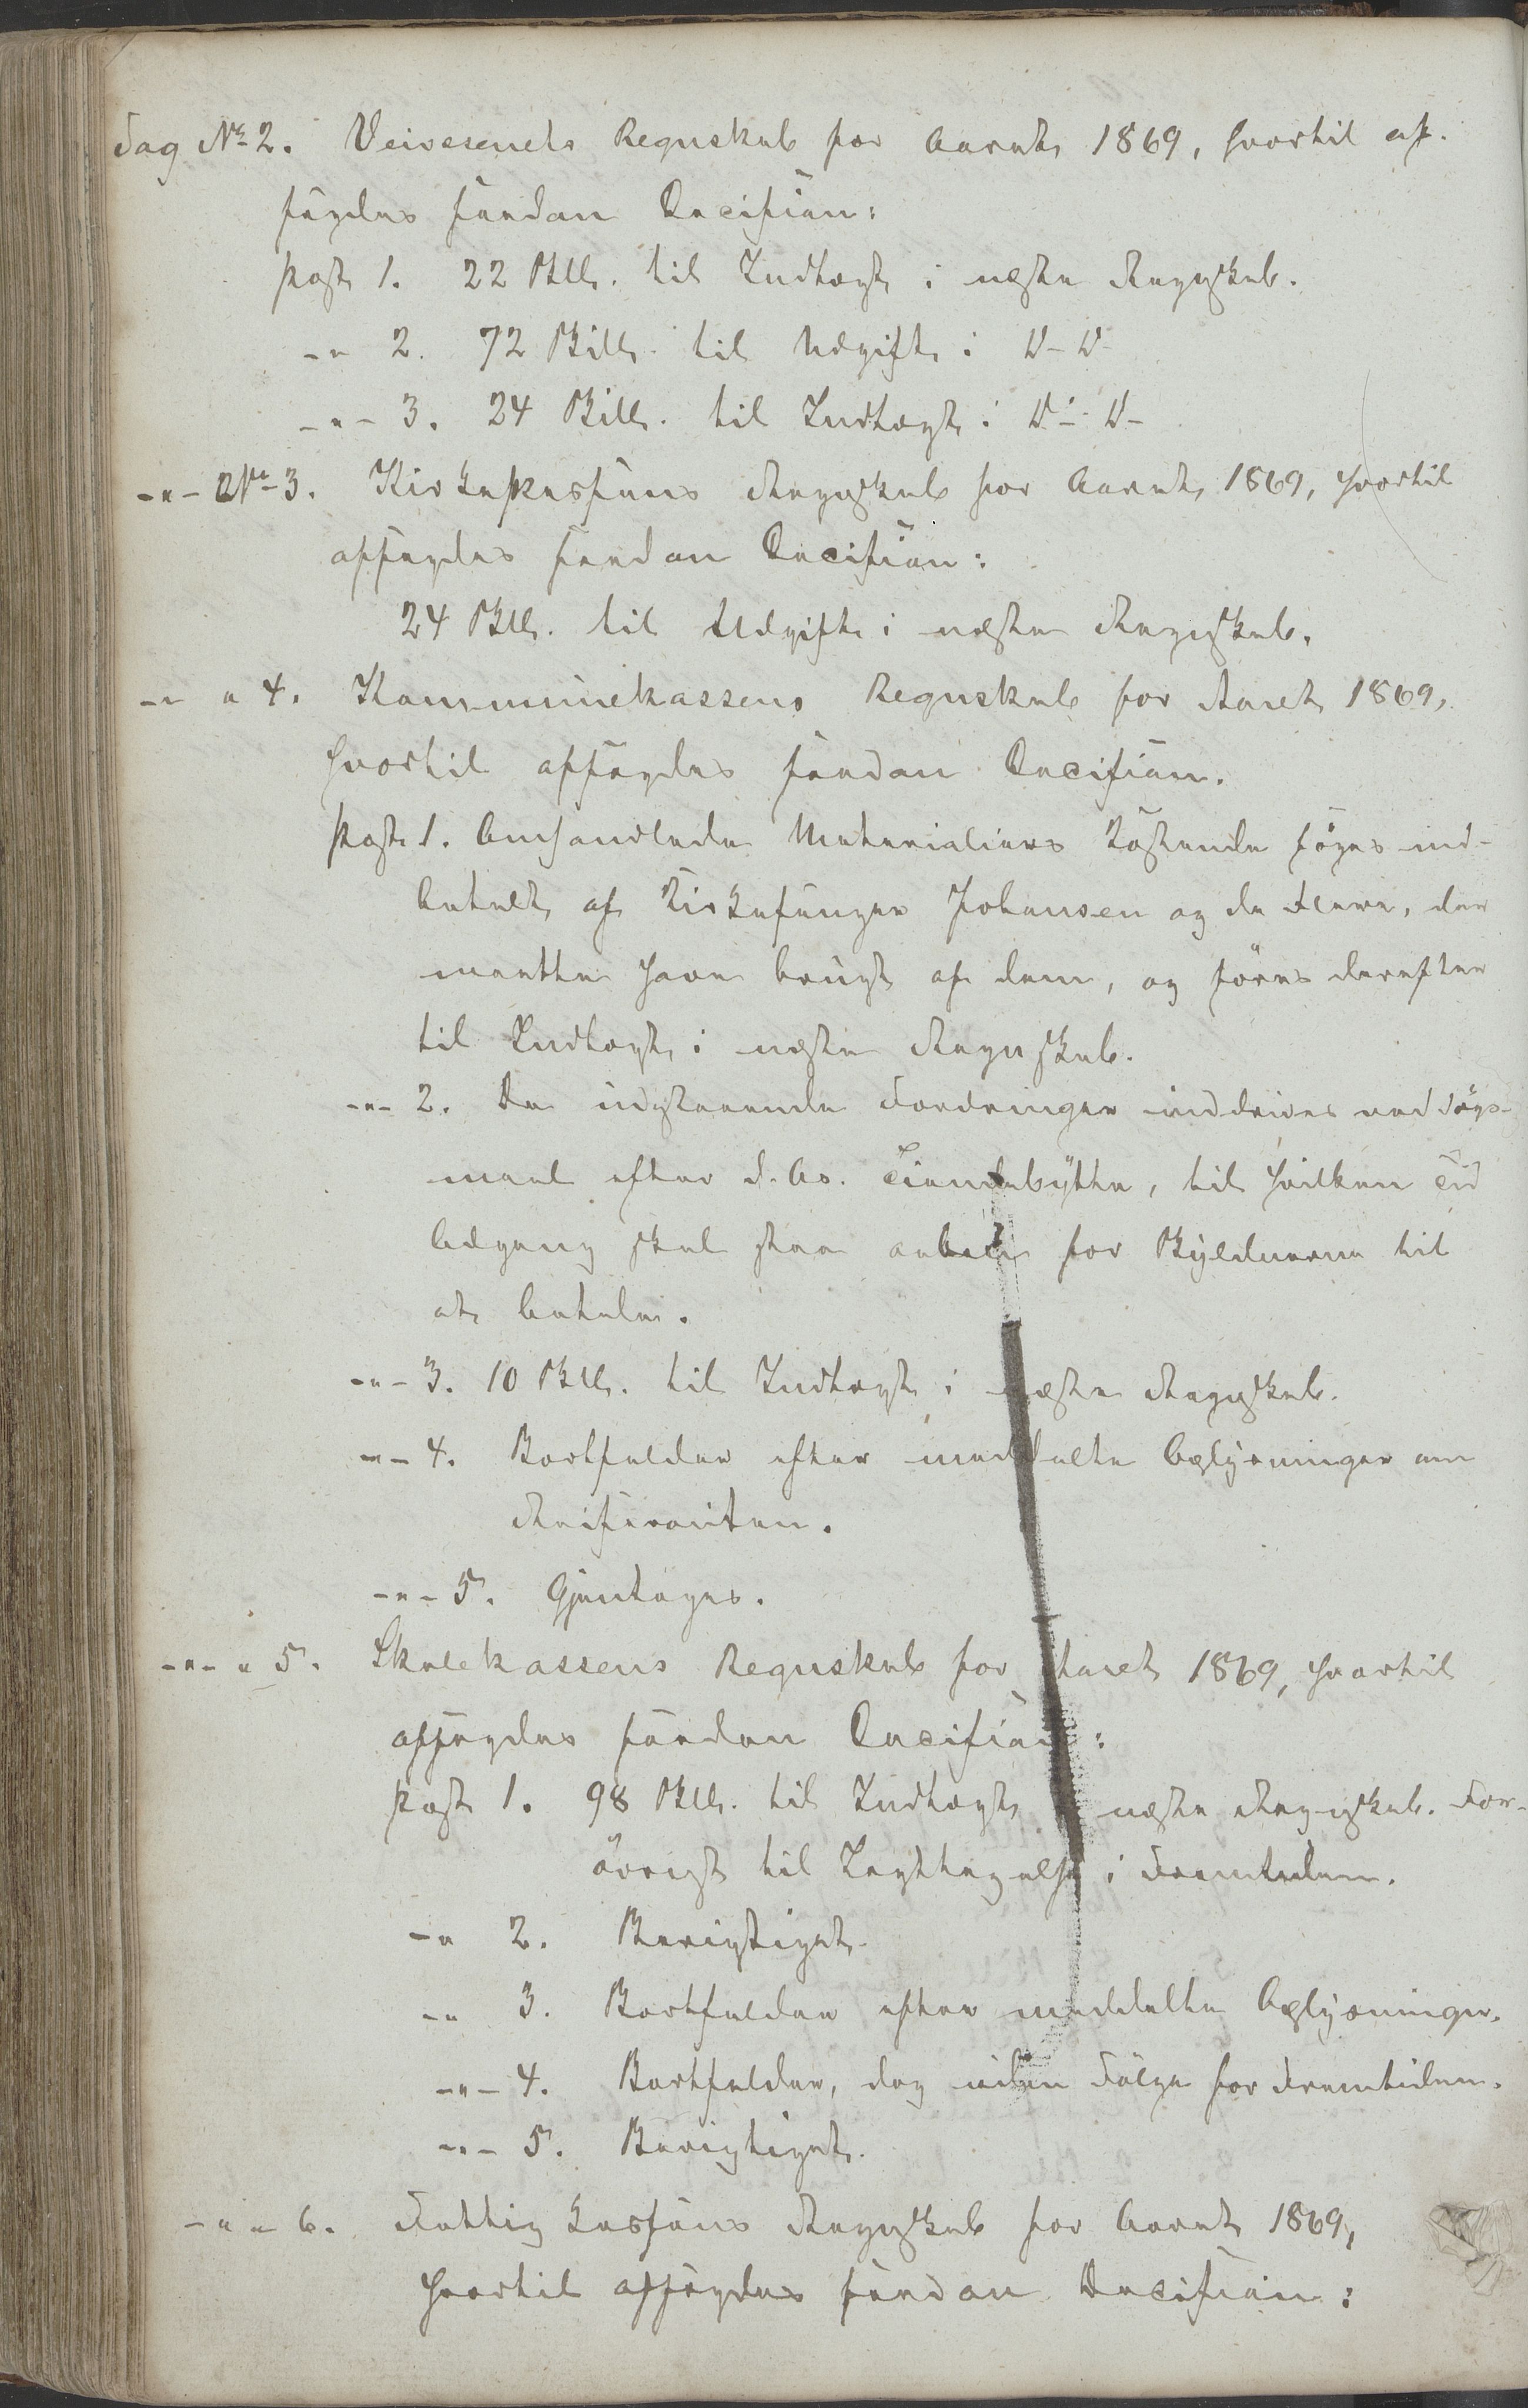 Sag No 2. Veivesenets Regnskab for Aaret 1869, hvortil af-
sagdes saadan Decision:
Post 1. 22 Skll. til Indtægt i næste Regnskab.
-"- 2. 72 Skill. til Udgift i D- D-
-"- 3. 24 Skill. til Indtægt i D- D-
-"- No 3. Kirkekassens Regnskab for Aaret 1869, hvortil
afsagdes saadan Decision:
24 Skll. til Udgift i næste Regnskab.
-"- " 4. Kommunekassens Regnskab for Aaret 1869,
hvortil afsagdes saadan Decision.
Post 1. Omhandlede Materialiers Kostende søges ind-
betalt af Kirkesanger Johansen og de Flere, der
maatte have brugt af dem, og føres derefter
til Indtægt i næste Regnskab.
-"- 2. De udestaaende Fordringer inddrives ved Søgs-
maal efter d. As. Tiendebytte, til hvilken Tid
Adgang skal staa aaben for Skyldnerne til
at betale.
-"- 3. 10 Skll. til Indtægt i næste Regnskab.
-"- 4. Bortfalder efter meddelte Oplysninger om
-"- 5. Gjentages.
-"- " 5. Skolekassens Regnskab for Aaret 1869, hvortil
afsagdes saadan Decision:
Post 1. 98 Skll. til Indtægt i næste Regnskab. For-
øvrigt til Iagttagelse i Fremtiden.
-" 2. Berigtiget.
-" 3. Bortfalder efter meddelte Oplysninger.
-"- 4. Bortfalder, dog uden Følge for Fremtiden.
-"- 5. Berigtiget.
-" " 6. Fattigkassens Regnskab for Aaret 1869,
hvortil afsagdes saadan Decision: